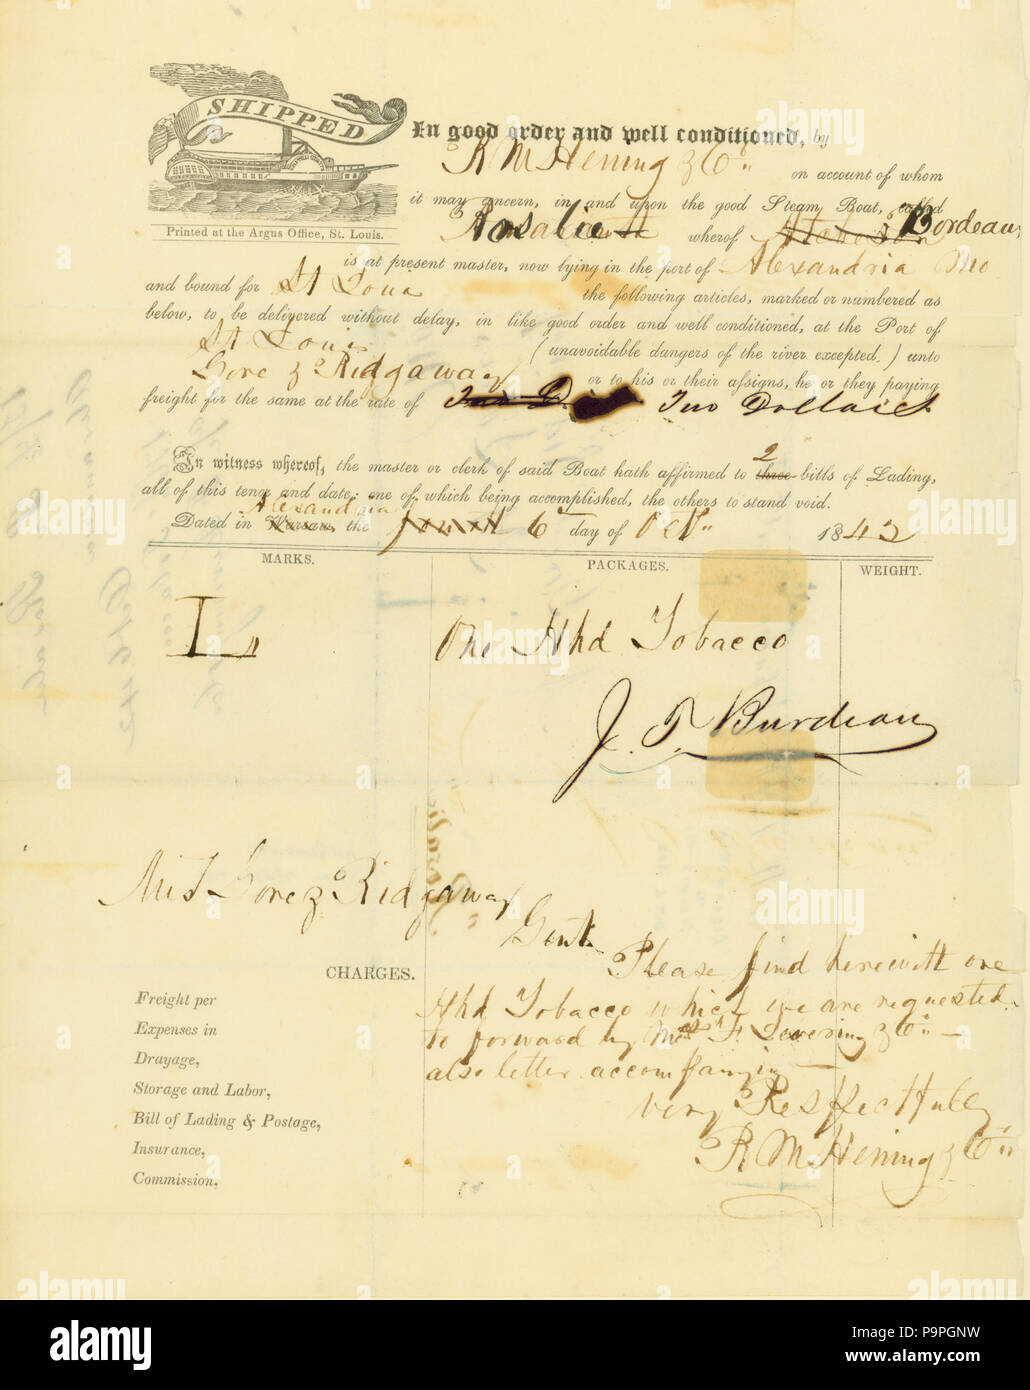 SHIPPED
Printed at the Argus Office, St. Louis.
In good order and well conditioned, by
R M Hening & Co
on account of whom
it may concern, in and upon the good Steam Boat, called
Rosalie whereof Bordeau,
is at present master, now lying in the port of Alexandria Mo
and bound for St Loui the following articles, marked or numbered as
below, to be delivered without delay, in like good order and well conditioned, at the Port of
St Loui (unavoidable dangers of the river excepted,) unto
Gore & Ridgaway or to his or their assigns, he or they paying
freight for the same at the rate of Two Dollars
In witness whereof, the master or clerk of said Boat hath affirmed to 2 three bills of Lading,
all of this tenor and date; one of which being accomplished, the others to stand void.
Alexandria
Dated in Warsaw, the 6 day of 1843
MARKS. PACKAGES. WEIGHT.
L One Hhd Tobacco
J. T. Burdeau
Gore & Ridgaway
Gent
Please find herewith one
Hhd Tobacco which we are requested
to forward by Mess F Levering & Co
also letter accompanying
very Respectfully
R M Hening & Co
CHARGES.
Freight per
Expenses in
Drayage,
Storage and Labor,
Bill of Lading & Postage,
Insurance,
Commission,
alamy
Image ID: P9PGNW
www.alamy.com